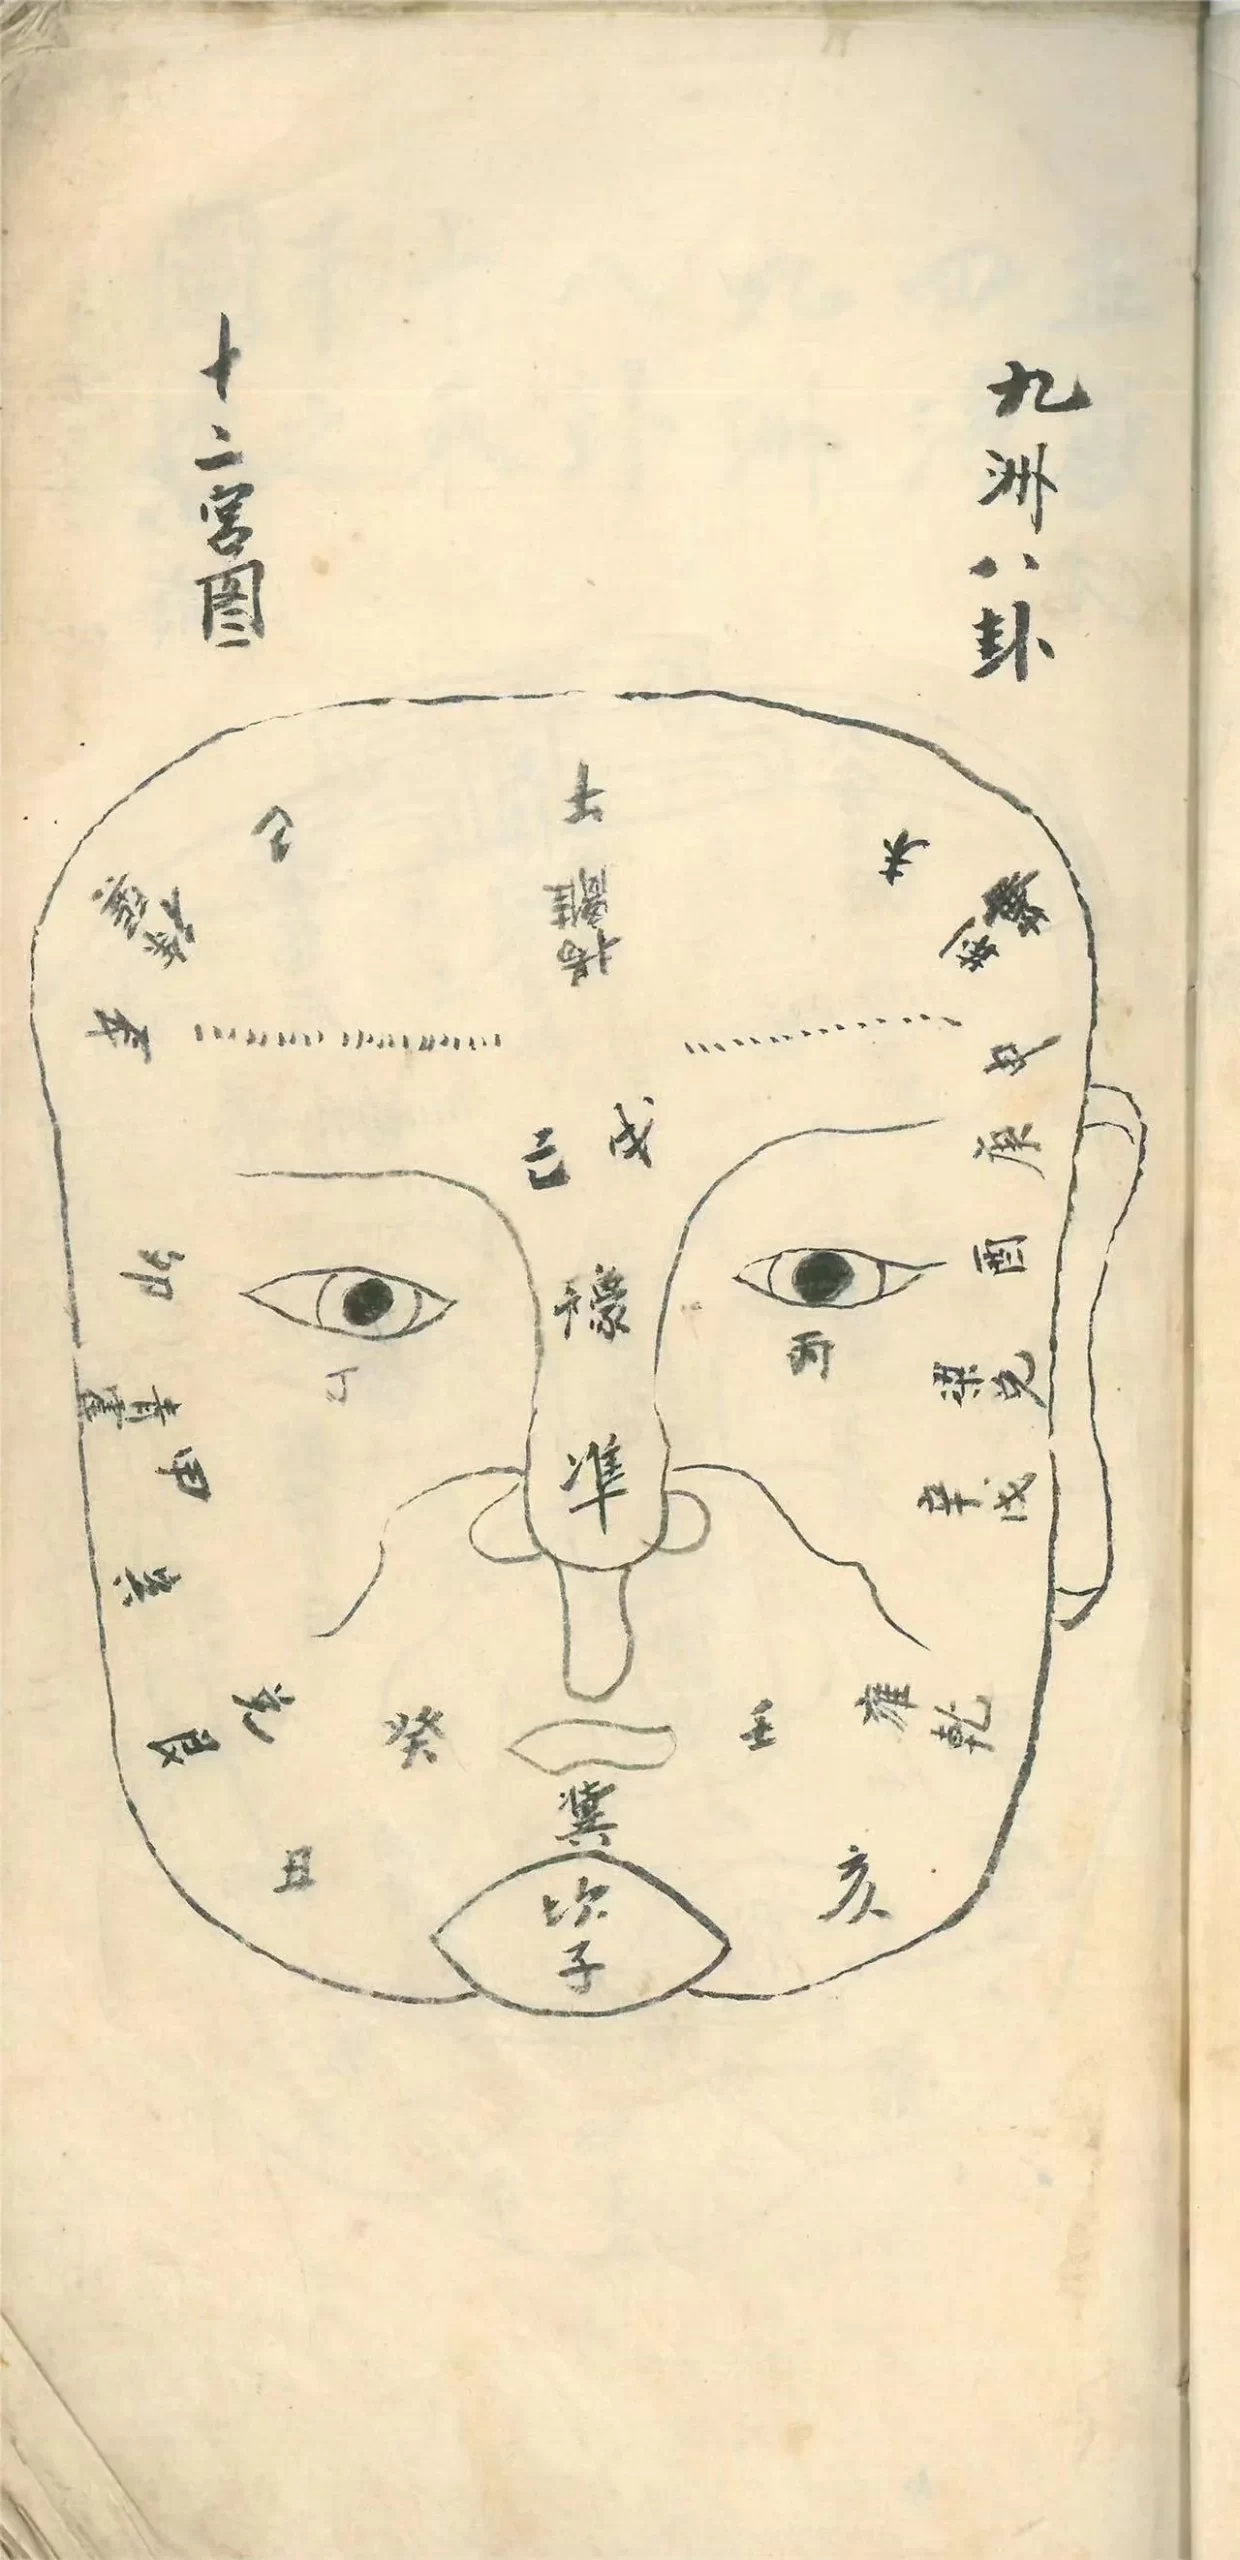 九洲八卦
十二宮图
午
離
揚
未
巳
徐
辰
申
庚
酉
兌
梁
辛
戊
己
戌
豫
準
丙
丁
卯
震
青
甲
寅
艮
兗
丑
癸
壬
雍
乾
冀
坎
子
亥